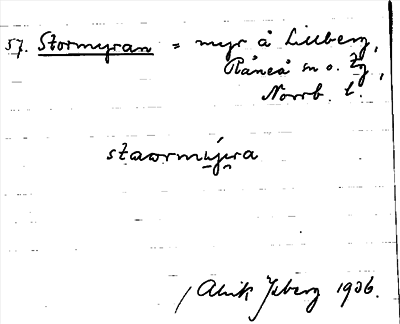 57. Stormyran = myr å Lillberg,
Råneå sn o. tg,
Norrb. l.
staormýra
/ Alrik Isberg 1936.